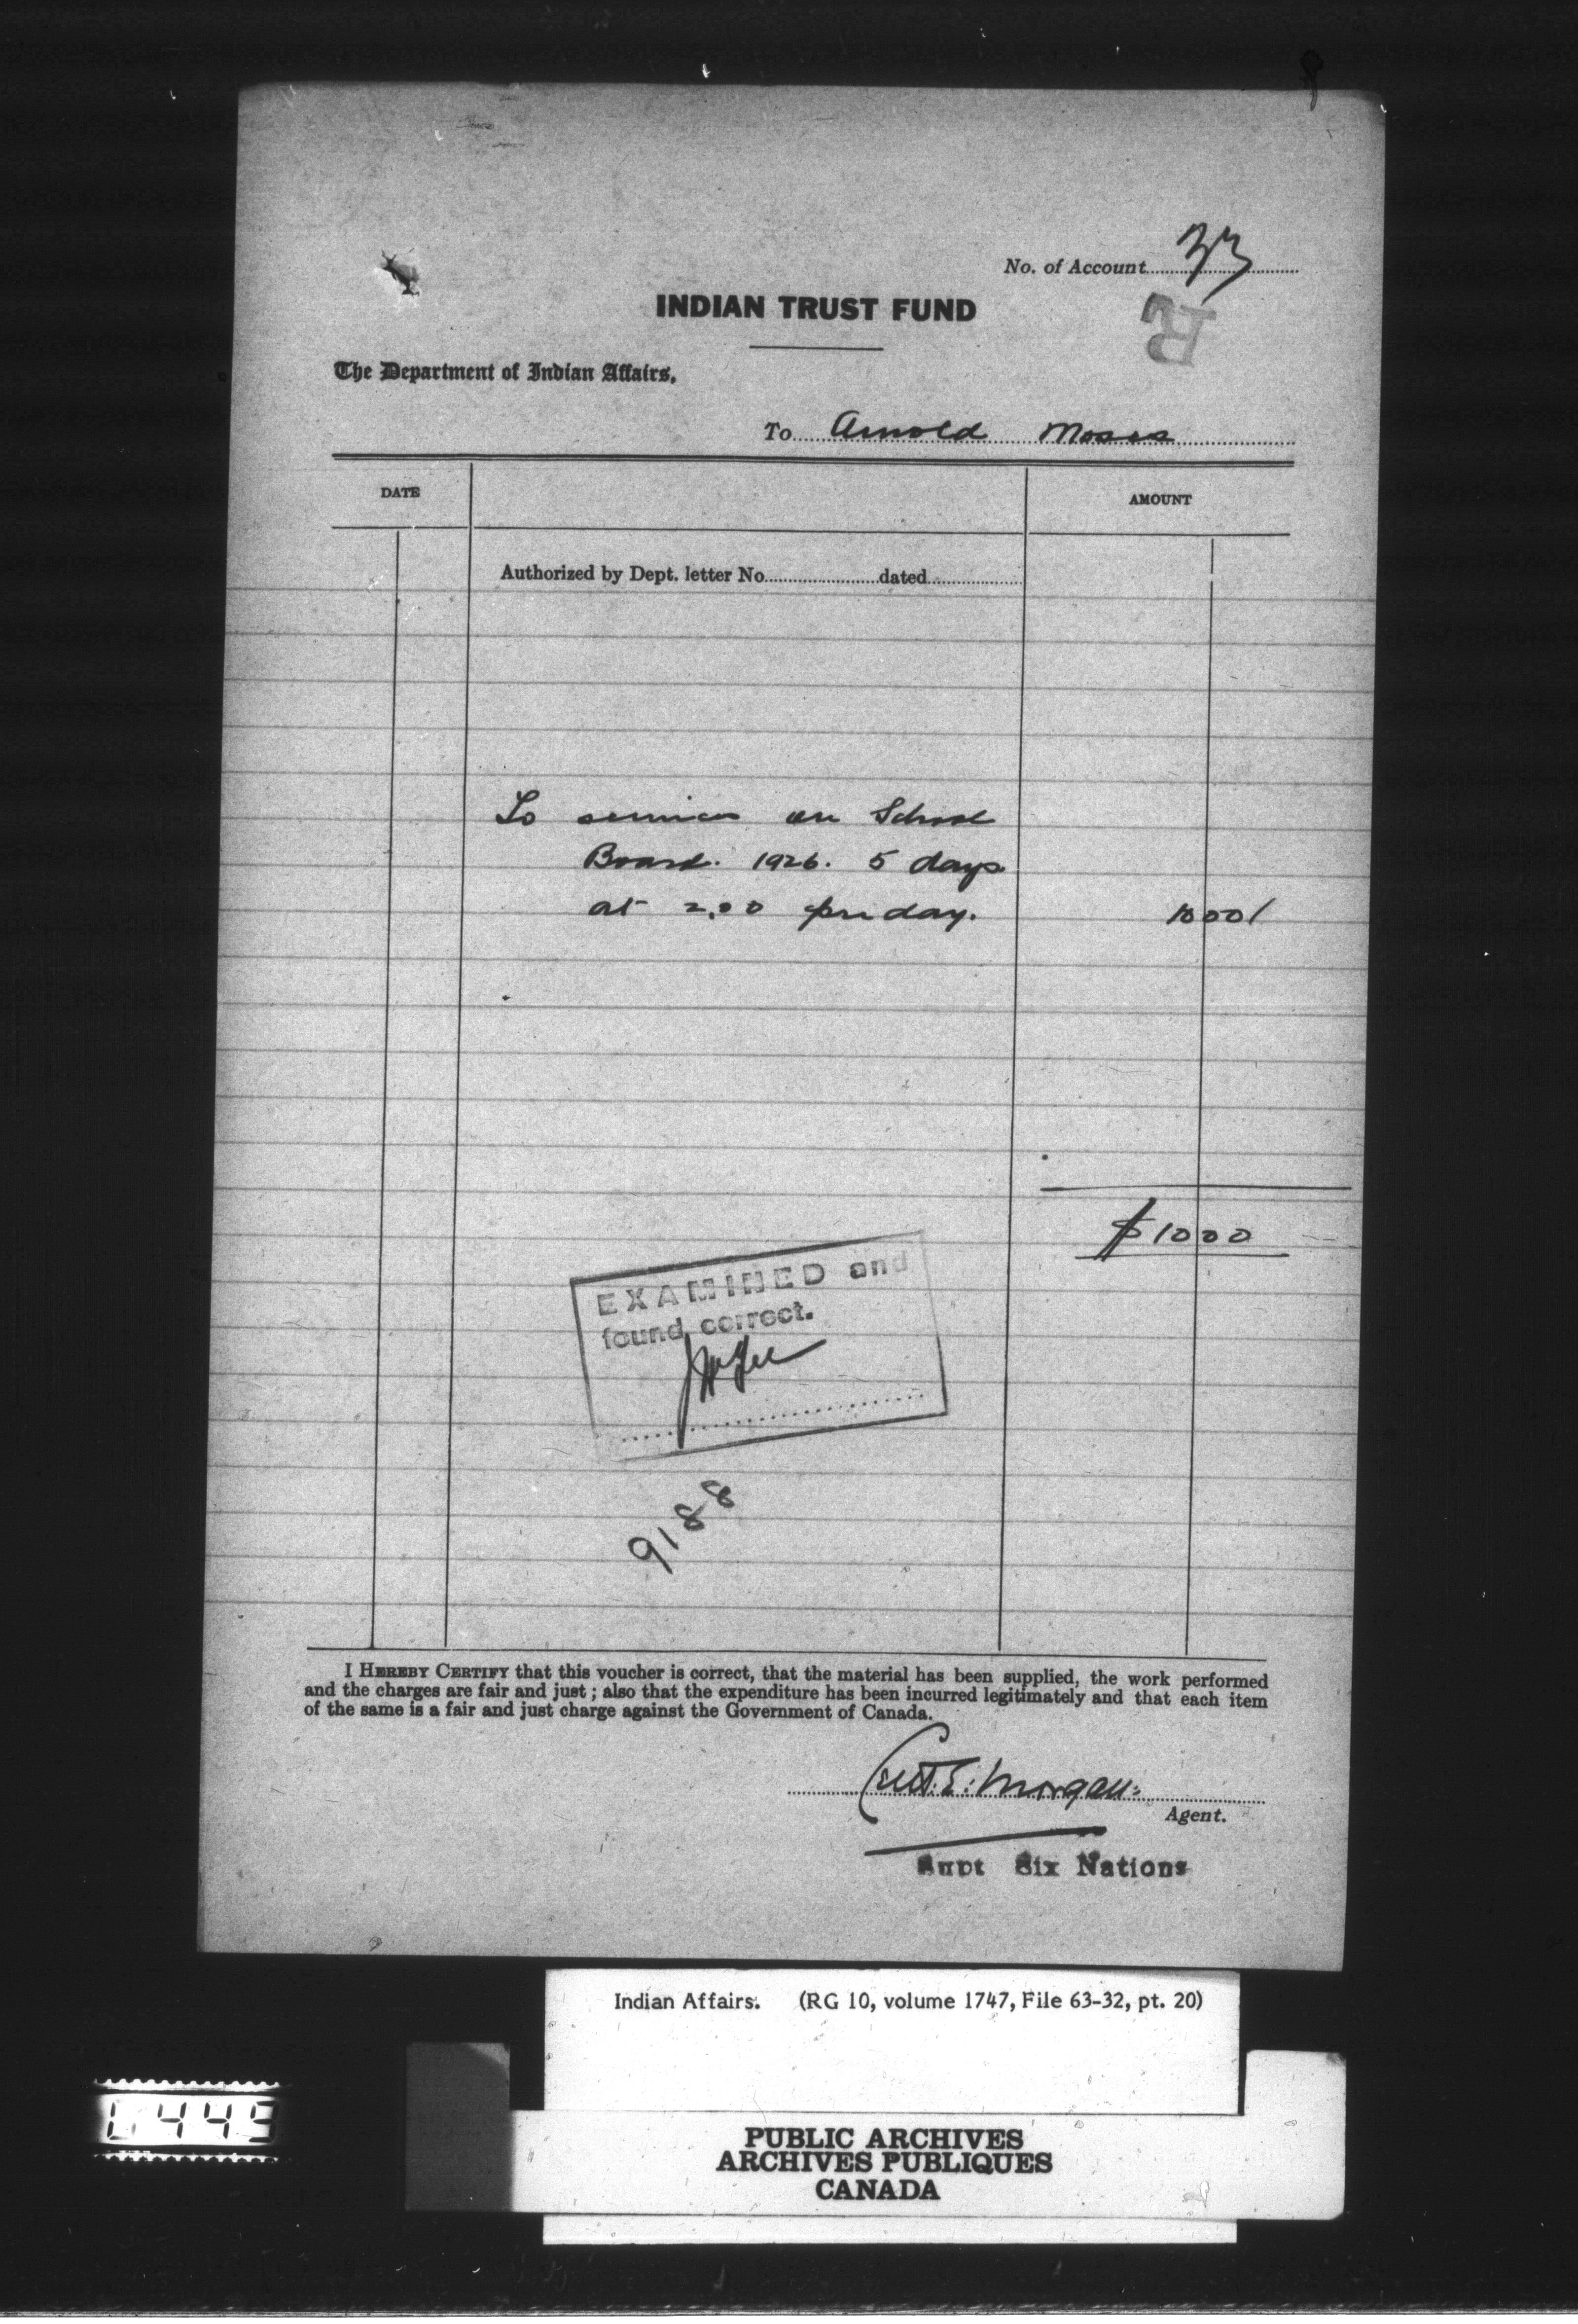 No. of Account 33
INDIAN TRUST FUND
R
The Department of Indian Affairs,
To Arnold Moses
DATE
AMOUNT
Authorized by Dept. letter No. dated
To services on School
Board. 1926. 5 days
at 2.00 per day. 10 00
$10 00
EXAMINED and
found correct.
9188
I HEREBY CERTIFY that this voucher is correct, that the material has been supplied, the work performed
and the charges are fair and just; also that the expenditure has been incurred legitimately and that each item
of the same is a fair and just charge against the Government of Canada.
E. Morgan
Agent.
Supt Six Nations
Indian Affairs. (RG 10, volume 1747, File 63-32, pt. 20)
449
PUBLIC ARCHIVES
ARCHIVES PUBLIQUES
CANADA